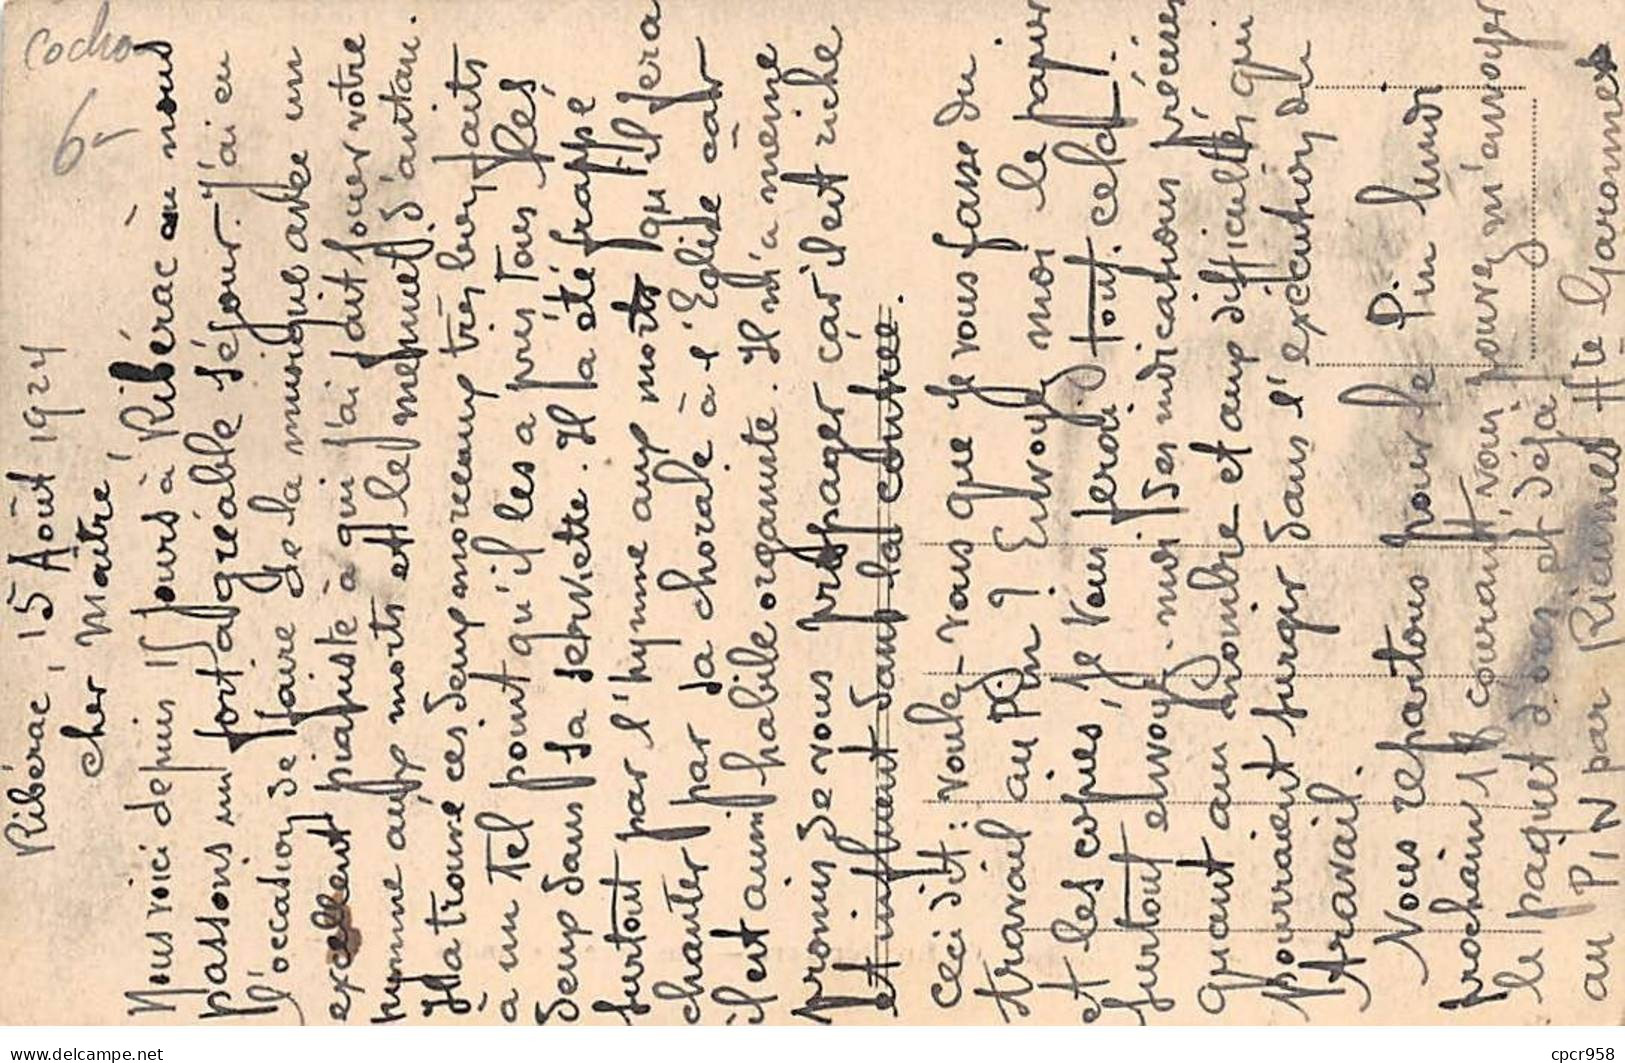 cocho
6-
Ribérac, 15 Août 1924
Cher Maître
Nous voici depuis 15 jours à Ribérac où nous
passons un fort agréable séjour. J'ai eu
l'occasion de faire de la musique avec un
excellent pianiste à qui j'ai fait jouer votre
hymne aux morts et le menuet d'antan.
Il a trouvé ces deux morceaux très bien faits
à un tel point qu'il les a pris tous les
deux dans sa serviette. Il a été frappé
surtout par l'hymne aux morts qu'il fera
chanter par sa chorale à l'Eglise car
il est aussi habile organiste. Il m'a même
promis de vous propager car il est riche
et influent dans la contrée.
Ceci dit : voulez-vous que je vous fasse du
travail au Pin ? Envoyez moi le papier
et les copies, je vous ferai tout cela.
surtout envoyez-moi des indications précises
quant au nombre et aux difficultés qui
pourraient surgir dans l'exécution du
travail.
Nous repartons pour le Pin lundi P.
prochain 18 courant vous pouvez m'envoyer
le paquet dores et déjà
au PIN par Rieumes Hte Garonne
cpcr958